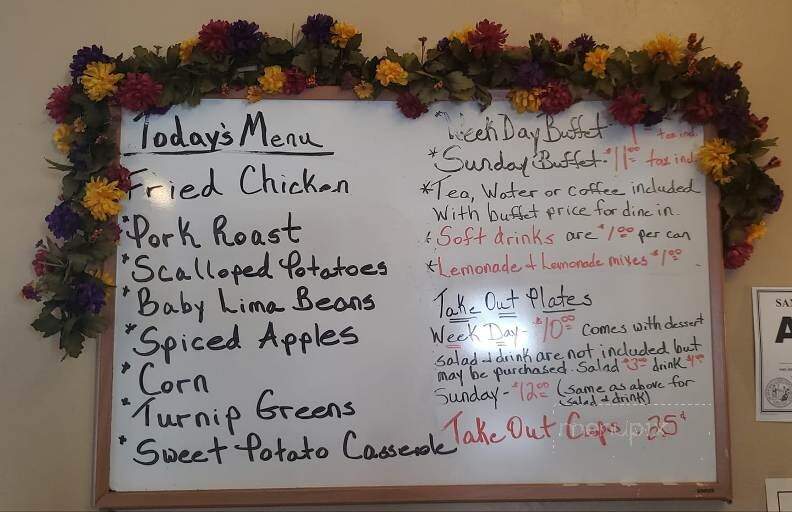 Today's Menu
Fried Chicken
*Pork Roast
*Scalloped Potatoes
*Baby Lima Beans
*Spiced Apples
*Corn
*Turnip Greens
*Sweet Potato Casserole
Week Day Buffet- tax incl.
*Sunday Buffet-$11.00 tax incl.
*Tea, Water or coffee included
with buffet price for dine in.
*Soft drinks are $1.00 per can
*Lemonade & Lemonade mixes $1.00
Take Out Plates
Week Day- $10.00 comes with dessert
salad & drink are not included but
may be purchased. Salad $3.00 drink $1.00
Sunday- $12.00 (same as above for
salad & drink)
Take Out Cups 25¢
menupix
SAN
A